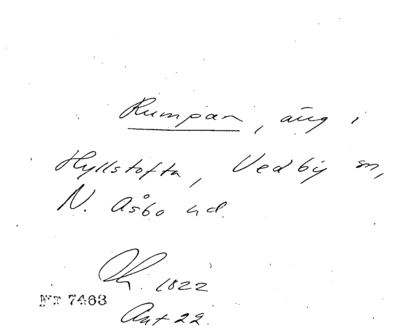 Rumpan, äng i
Hyllstofta, Vedby sn,
N. Åsbo hd.
1822
NT 7463
Akt 22.